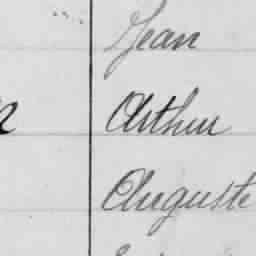 Jean
Arthur
Auguste